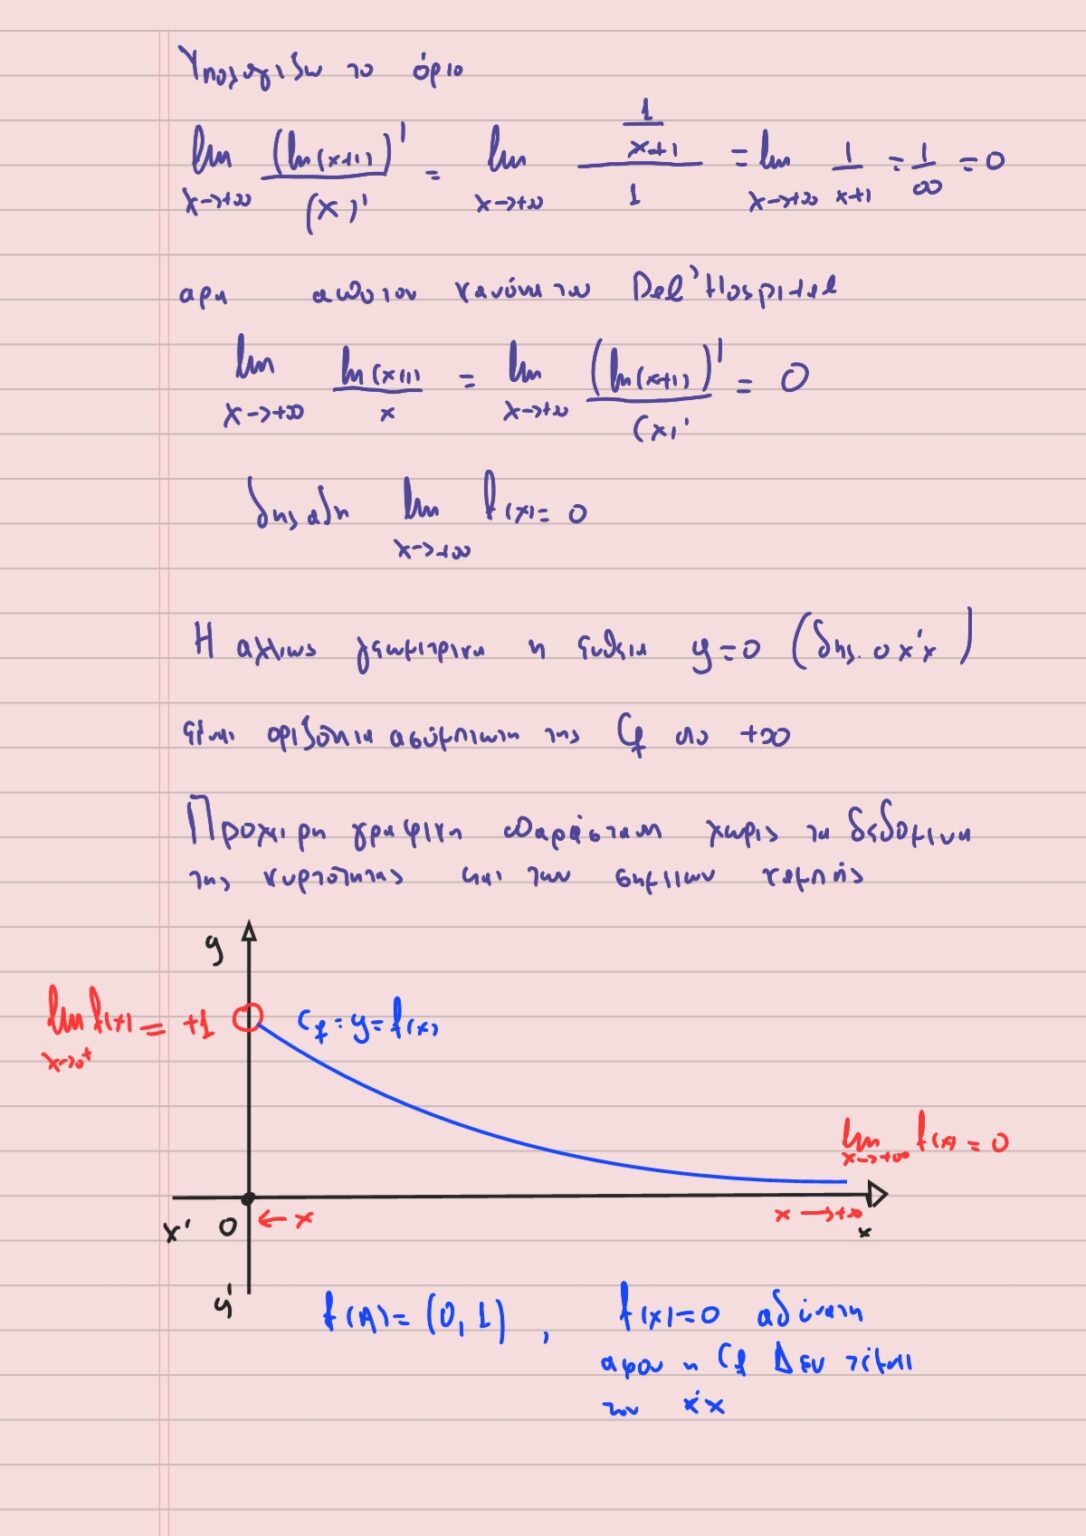 Υπολογιζω το όριο
lim x→+∞ (ln(x+1))' / (x)' = lim x→+∞ (1/(x+1)) / 1 = lim x→+∞ 1/(x+1) = 1/∞ = 0
αρα απο τον κανόνα του Del'Hospital
lim x→+∞ ln(x+1) / x = lim x→+∞ (ln(x+1))' / (x)' = 0
δηλαδη lim x→+∞ f(x) = 0
Η αλλιως γεωμετρικα η ευθεια y=0 (δηλ. ο x'x)
είναι οριζόντια ασύμπτωτη της Cf στο +∞
Προχειρη γραφικη παράσταση χωρις τα δεδομενα
της κυρτοτητας και των σημειων καμπής
y
lim x→0⁺ f(x) = +1
Cf: y=f(x)
lim x→+∞ f(x) = 0
x' 0 ← x x → +∞ x
y'
f(A) = (0, 1) , f(x)=0 αδύνατη
αφου η Cf Δεν τέμνει
τον x'x